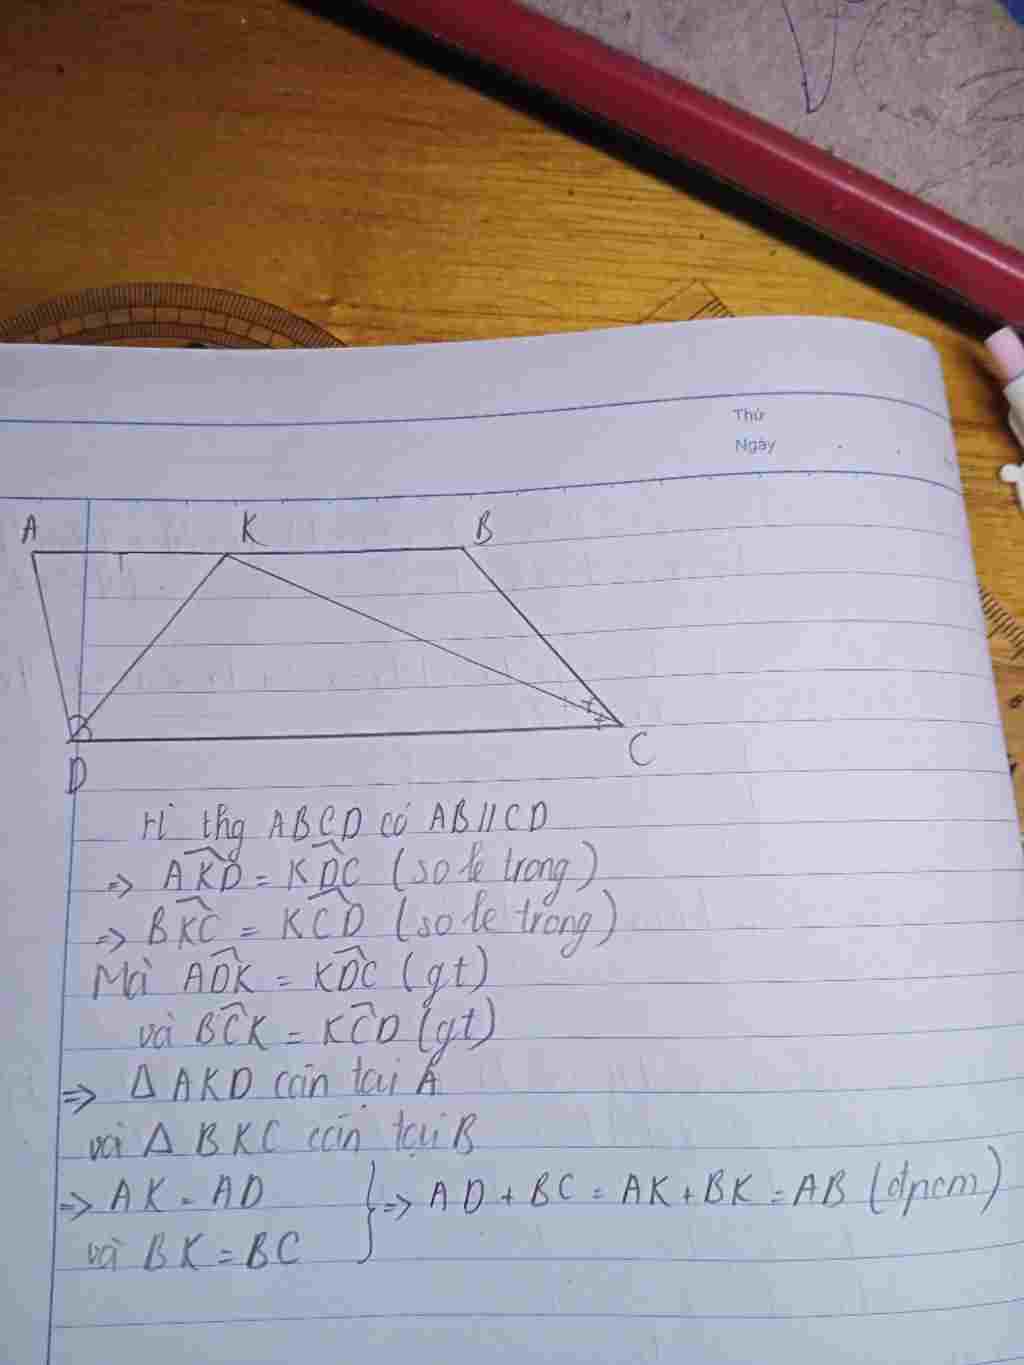 Thứ
Ngày
A K B
D C
Hì thg ABCD có AB//CD
=> AKD̂ = KDĈ (so le trong)
=> BKĈ = KCD̂ (so le trong)
Mà ADK̂ = KDĈ (gt)
và BCK̂ = KCD̂ (gt)
=> Δ AKD cân tại A
và Δ BKC cân tại B
=> AK = AD
và BK = BC
} => AD + BC = AK + BK = AB (đpcm)